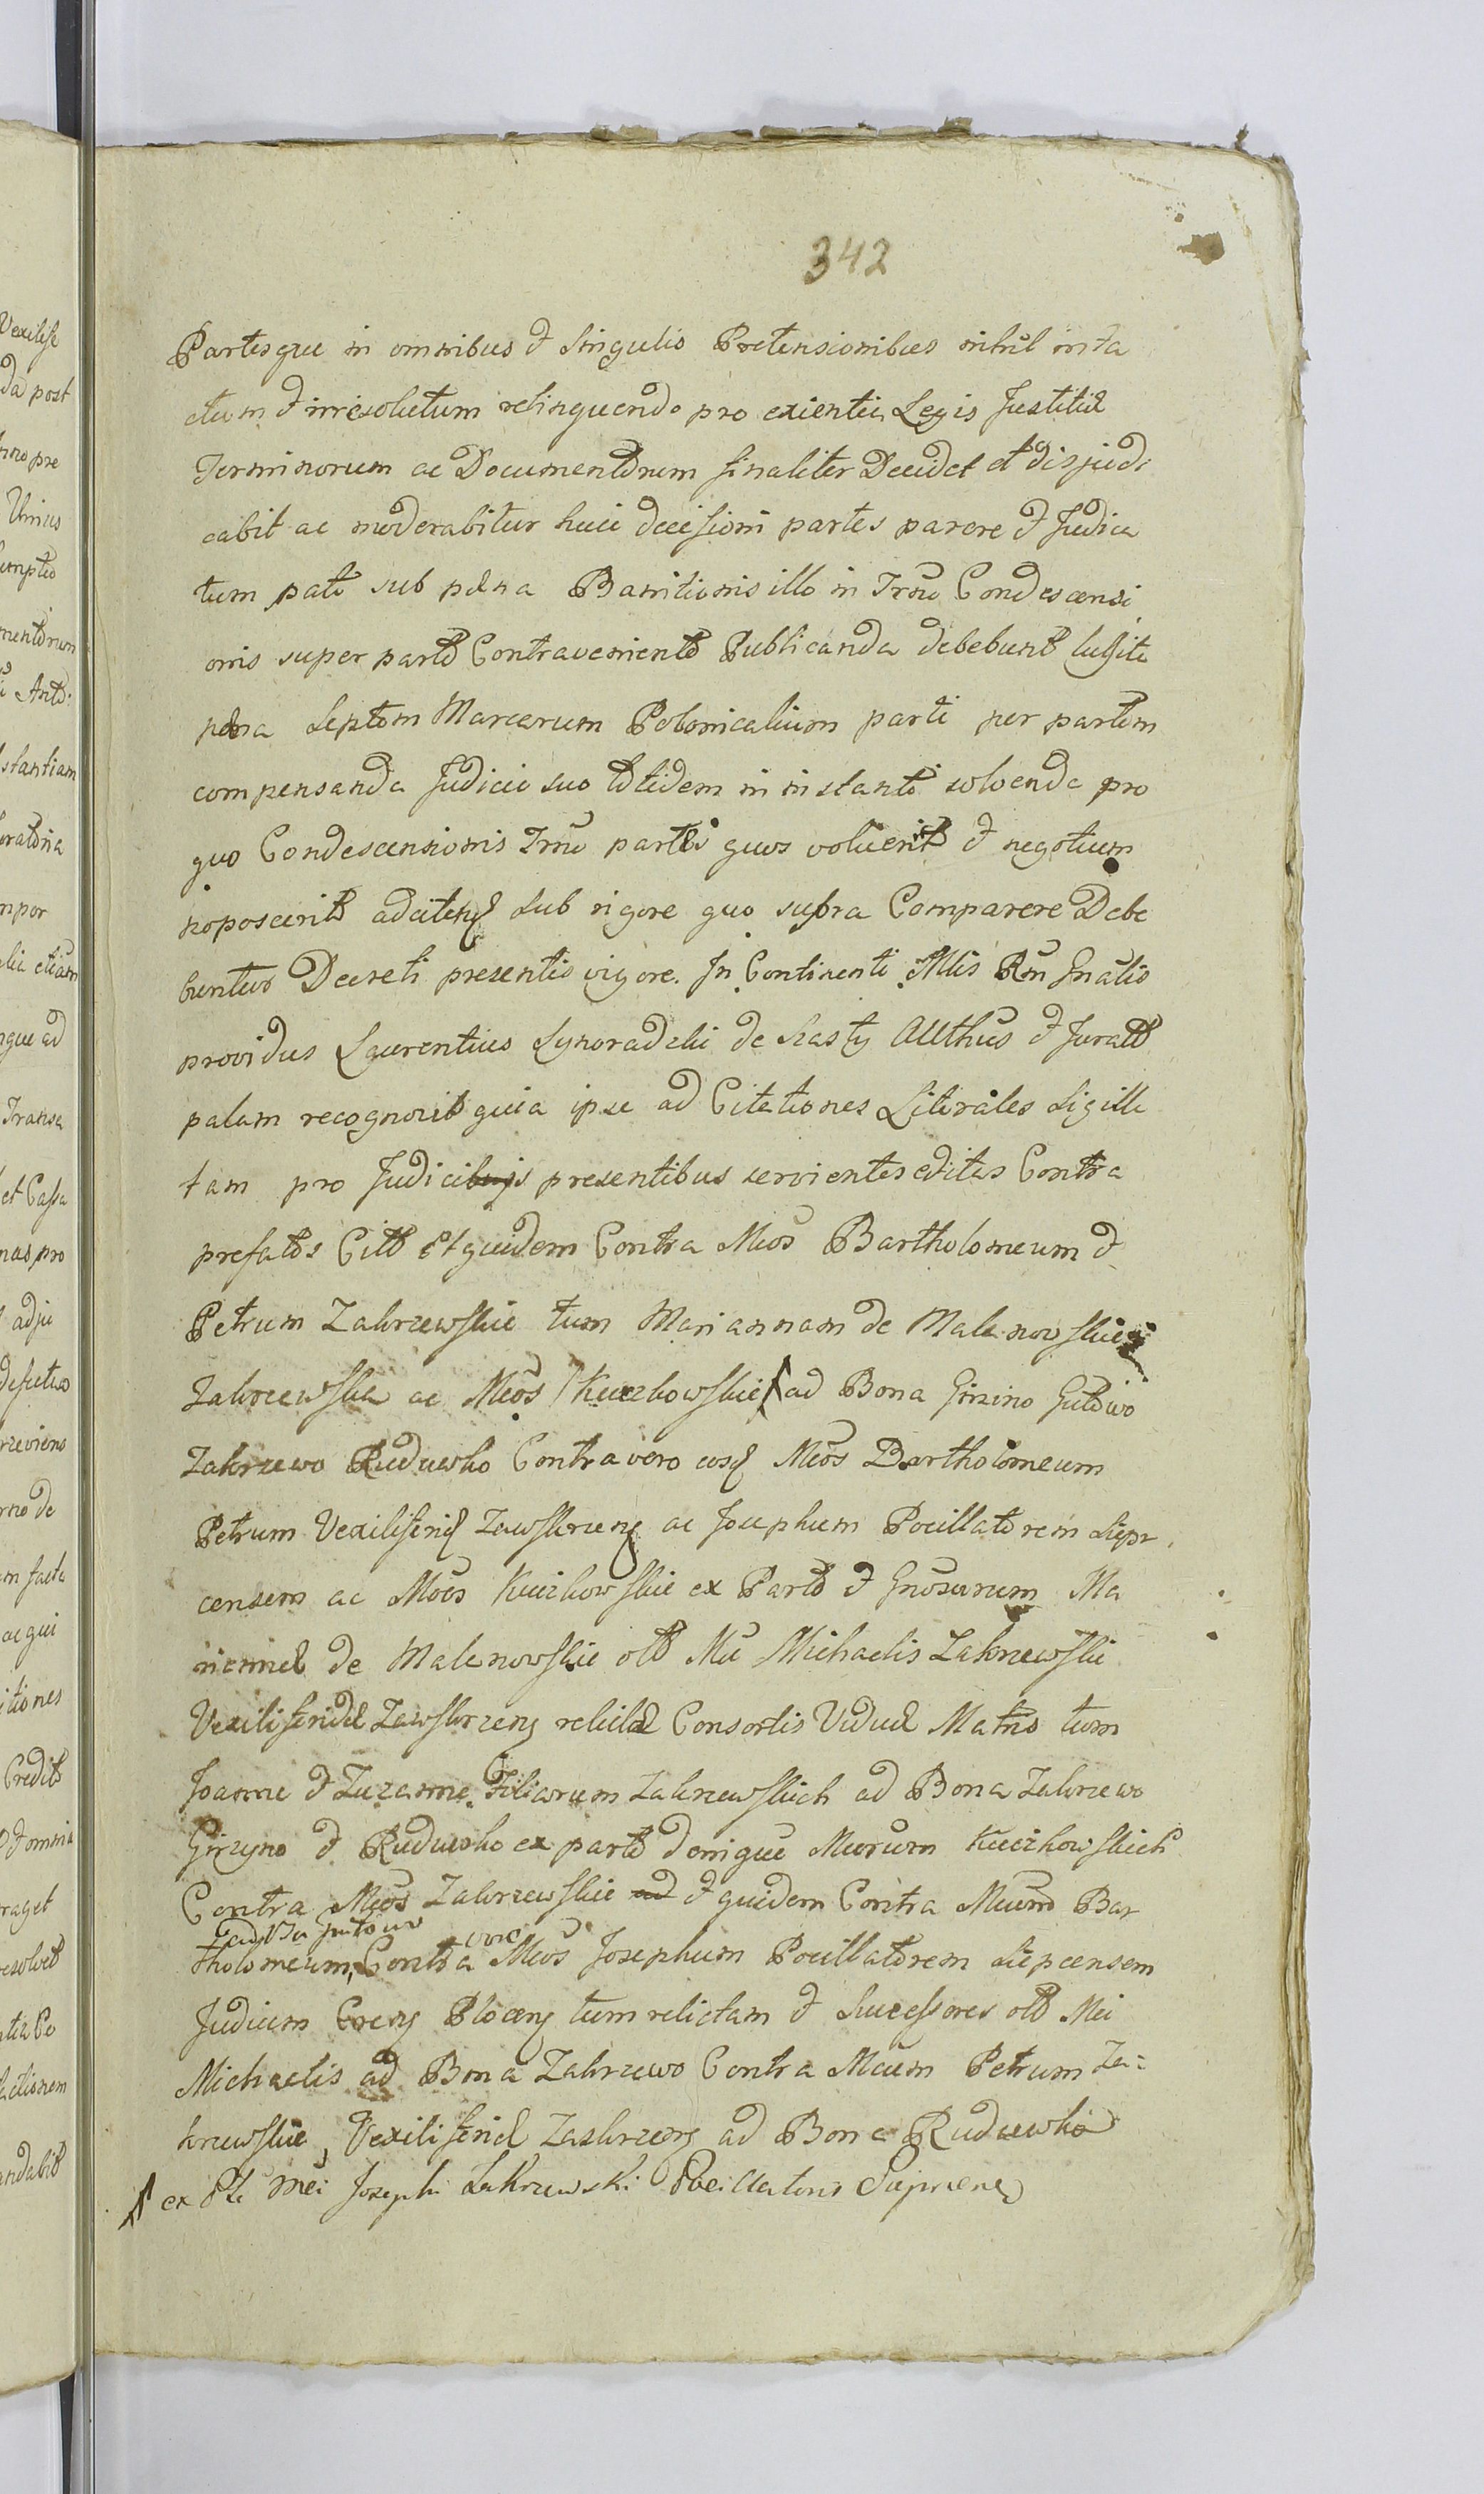 342
Partesque in omnibus et Singulis Pretensionibus nihil inta
ctum et irresolutum relinquendo pro exientia Legis Justitiæ
Terminorum ac Documentorum finaliter Decidet et disjudi
cabit ac moderabitur huic decisioni partes parere et Judica
tum pati sub pæna Banitionis illo in Trno Condescensi
onis super parte Contraveniente Publicanda debebunt
pæna Septem Marcarum Polonicalium parti per partem
compensanda Judicio suo totidem in instanti solvenda pro
quo Condescensionis Trno partes quos voluerit et negotium
poposcerit adciten Sub rigore quo supra Comparere Debe
buntur Decreti presentis vigore. In Continenti Mtis Rm Gnalis
providus Laurentius de Authus et Juratt
palam recognovit quia ipse ad Citationes Literales Sigilla
tam pro Judiciis presentibus servientes editas Contra
prefatos Citt Et quidem Contra Mcos Bartholomeum et
Petrum Zakrzewskie tum Mariannam de Malenowskie
Zakrzewska ac Mcos Kuczkowskie ad Bona Girzino Gutowo
Zakrzewo Ruduwko Contra vero eosq Mcos Bartholomeum
Petrum Vexiliferid Zawskrzeng ac Josephum Pocillatorem Siepr
censem ac Mcos Kuczkowskie ex Parte et Gnosarum Ma
riannæ de Malenowskie olt Mci Michaelis Zakrzewski
Vexiliferidæ Zawskrzeng relictæ Consortis Viduæ Matris tum
Joanne et Zuzanne Filiarum Zakrzewskich ad Bona Zakrzewo
Girzyno et Ruduwko ex parte denique Mcorum Kuczkowskich
Contra Mcos Zakrzewskie ad et quidem Contra Mcum Bar
ad Bna Gutowo vero
tholomeum, Contra Mcos Josephum Pocillatorem Siepcensem
Judicem Plocen tum relictam et Successores olt Mci
Michaelis ad Bona Zakrzewo Contra Mcum Petrum Za=
krzewskie, Vexiliferid Zaskrzeng ad Bona Ruduwko
ex Pte Mci Josephi Zakrzewski Pocillatoris Sieprcens